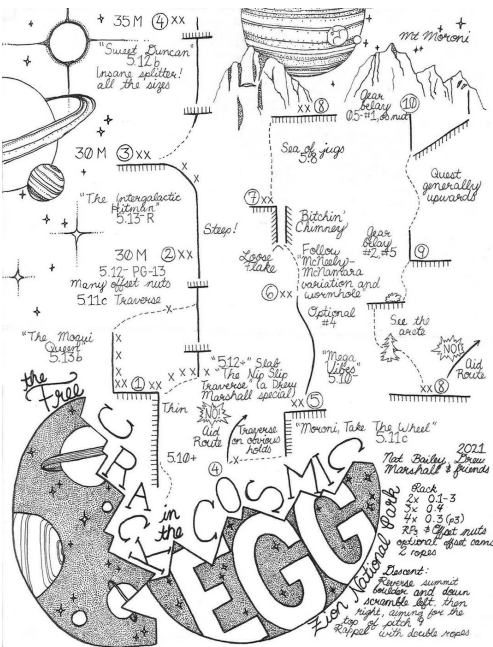 35 M ④ xx
"Sweet Duncan"
5.12b
Insane splitter!
all the sizes
30 M ③ xx
"The Intergalactic
Hitman"
5.13- R
Steep!
30 M ② xx
5.12- PG-13
Many offset nuts
5.11c Traverse
"The Moqui
Queen"
5.13b
① xx
"5.12+" Slab
The Nip Slip
Traverse" (a Drew
Marshall special)
Thin
NO!
Aid
Route
Traverse
on obvious
holds
5.10+
④
xx
Mt Moroni
xx ⑧
Gear
belay
0.5-#1, os nut
⑩
Sea of jugs
5.8
Quest
generally
upwards
⑦ xx
Bitchin'
Chimney
Loose
Flake
Follow
"McNeely-
McNamara
variation and
wormhole
Gear
belay
#2, #5
⑨
⑥ xx
Optional
#4
See the
arete
NO!!
Aid
Route
"Mega
Vibes"
5.10-
xx ⑤
xx ⑧
"Moroni, Take The Wheel"
5.11c
the
Free
CRACK
in
the
COSMIC
EGG
Zion National Park
2021
Nat Bailey, Drew
Marshall & friends
Rack
2x 0.1-3
3x 0.4
4x 0.3 (p3)
RPs & Offset nuts
optional offset cams
2 ropes
Descent:
Reverse summit
boulder and down
scramble left, then
right, aiming for the
top of pitch 9
Rappel with double ropes